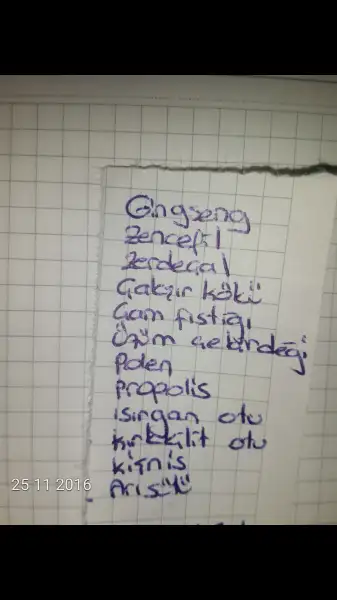 Gingseng
Zencefil
Zerdeçal
Çakşır kökü
Çam fıstığı
Üzüm çekirdeği
Polen
propolis
ısırgan otu
kırkkilit otu
kişniş
Arısütü
25 11 2016